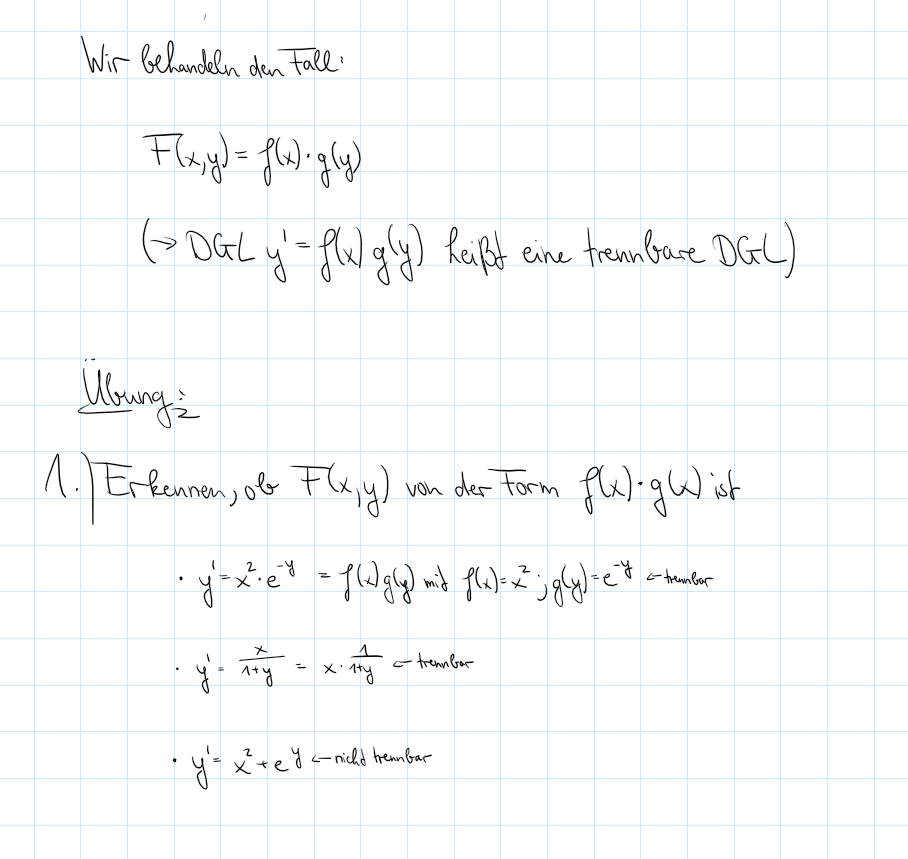 Wir behandeln den Fall:
F(x,y) = f(x)·g(y)
(→ DGL y' = f(x) g(y) heißt eine trennbare DGL)
Übung:
1.) Erkennen, ob F(x,y) von der Form f(x)·g(x) ist
· y' = x²·e^-y = f(x)g(y) mit f(x)=x²; g(y)=e^-y ← trennbar
· y' = x/(1+y) = x · 1/(1+y) ← trennbar
· y' = x² + e^y ← nicht trennbar